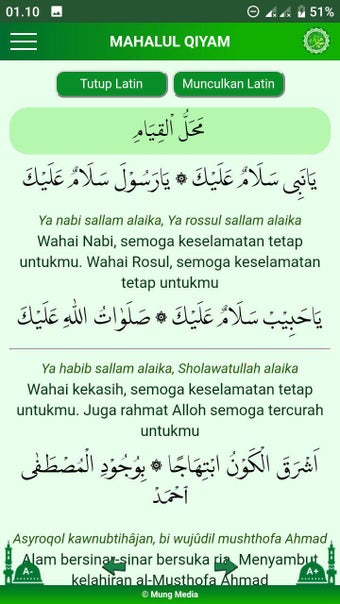 01.10
51%
MAHALUL QIYAM
Tutup Latin
Munculkan Latin
مَحَلُّ الْقِيَامِ
يَانَبِى سَلَامٌ عَلَيْكَ ۞ يَارَسُوْلَ سَلَامٌ عَلَيْكَ
Ya nabi sallam alaika, Ya rossul sallam alaika
Wahai Nabi, semoga keselamatan tetap
untukmu. Wahai Rosul, semoga keselamatan
tetap untukmu
يَاحَبِيْبْ سَلَامٌ عَلَيْكَ ۞ صَلَوٰاتُ اللهِ عَلَيْكَ
Ya habib sallam alaika, Sholawatullah alaika
Wahai kekasih, semoga keselamatan tetap
untukmu. Juga rahmat Alloh semoga tercurah
untukmu
اَشْرَقَ الْكَوْنُ ابْتِهَاجًا ۞ بِوُجُوْدِ الْمُصْطَفٰى
اَحْمَدْ
Asyroqol kawnubtihâjan, bi wujûdil mushthofa Ahmad
Alam bersinar-sinar bersuka ria. Menyambut
kelahiran al-Musthofa Ahmad
A-
A+
© Mung Media